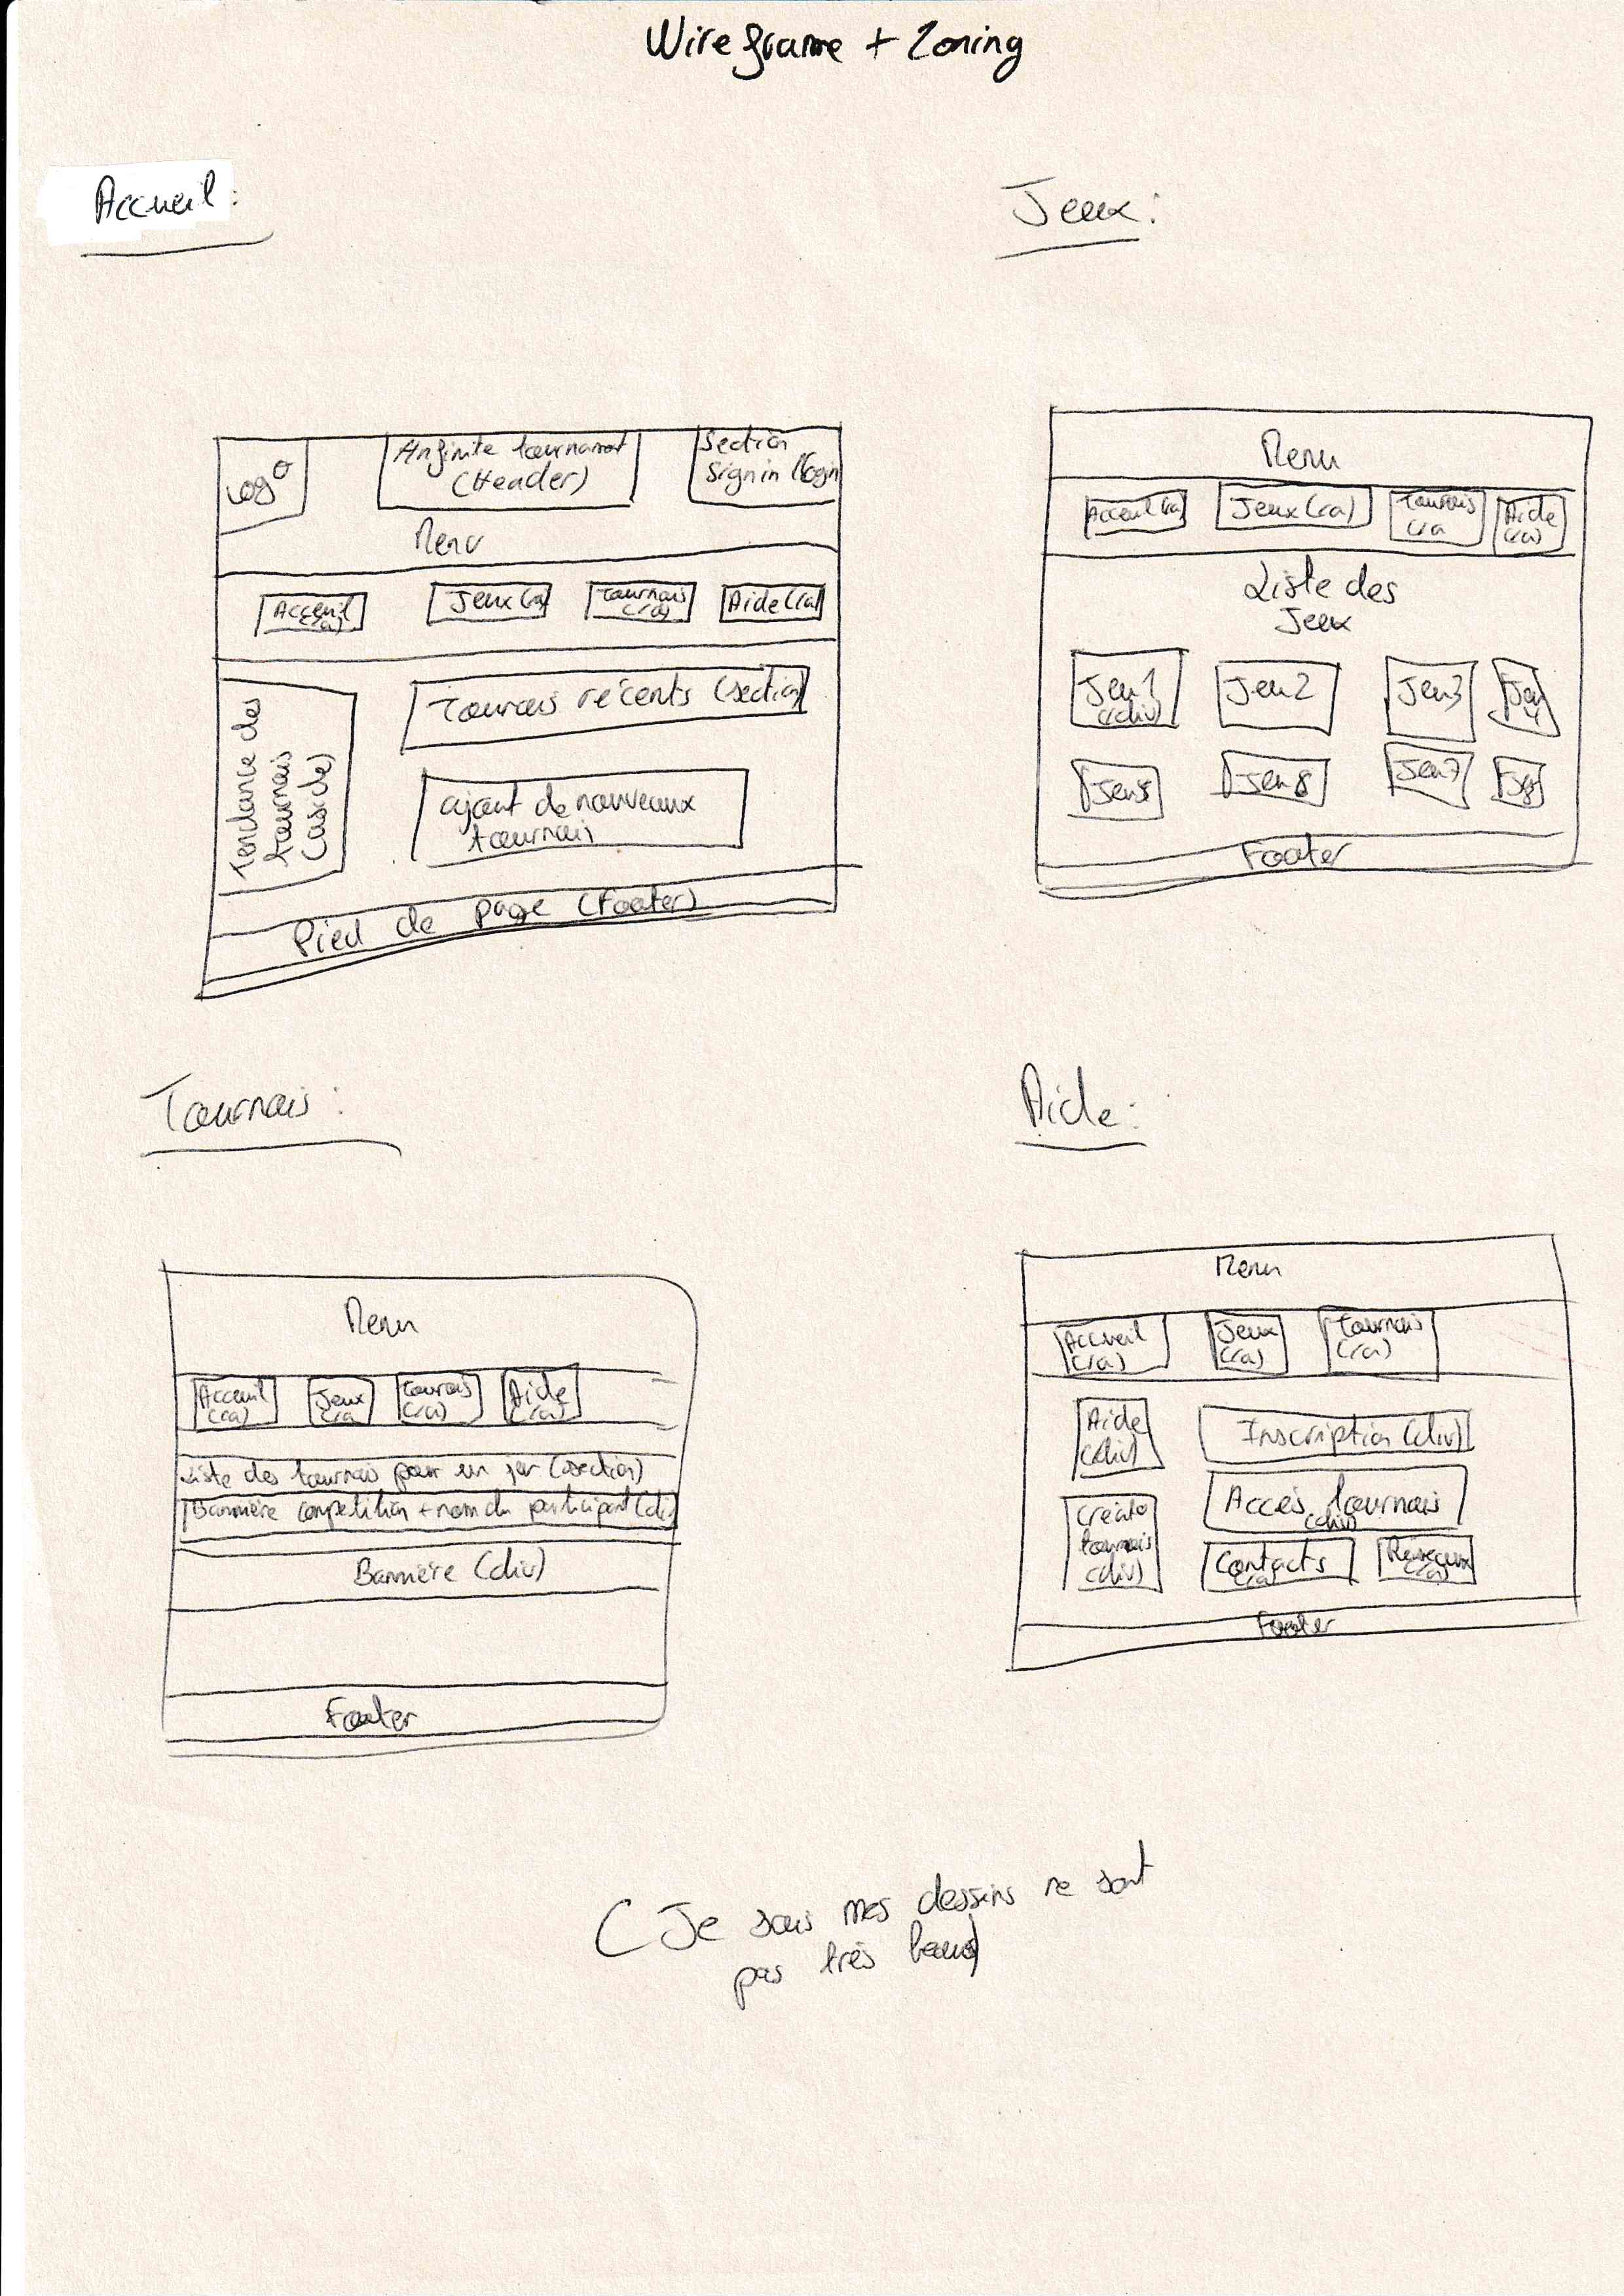 Wireframe + Zoning
Accueil :
Logo
Infinite tournament
(Header)
Section
Sign in (login
Menu
Acceuil
(ra)
Jeux (ra
Tournois
(ra)
Aide (ra)
Tendance des
tournois
(aside)
Tournois récents (section)
ajout de nouveaux
tournois
Pied de page (Footer)
Jeux :
Menu
Acceuil (ra)
Jeux (ra)
Tournois
(ra
Aide
(ra)
Liste des
Jeux
Jeu 1
(div)
Jeu 2
Jeu 3
Jeu
4
Jeu 5
Jeu 6
Jeu 7
J8
Footer
Tournois :
Menu
Acceuil
(ra)
Jeux
(ra
Tournois
(ra)
Aide
(ra)
Liste des tournois pour un jeu (section)
Bannière compétition + nom du participant (div
Bannière (div)
Footer
Aide :
Menu
Accueil
(ra)
Jeux
(ra)
Tournois
(ra)
Aide
(div)
Inscription (div)
Accès tournois
(div)
tournois
(div)
Contacts
(ra)
Reseaux
(ra)
Footer
( Je sais mes dessins ne sont
pas très beaux)